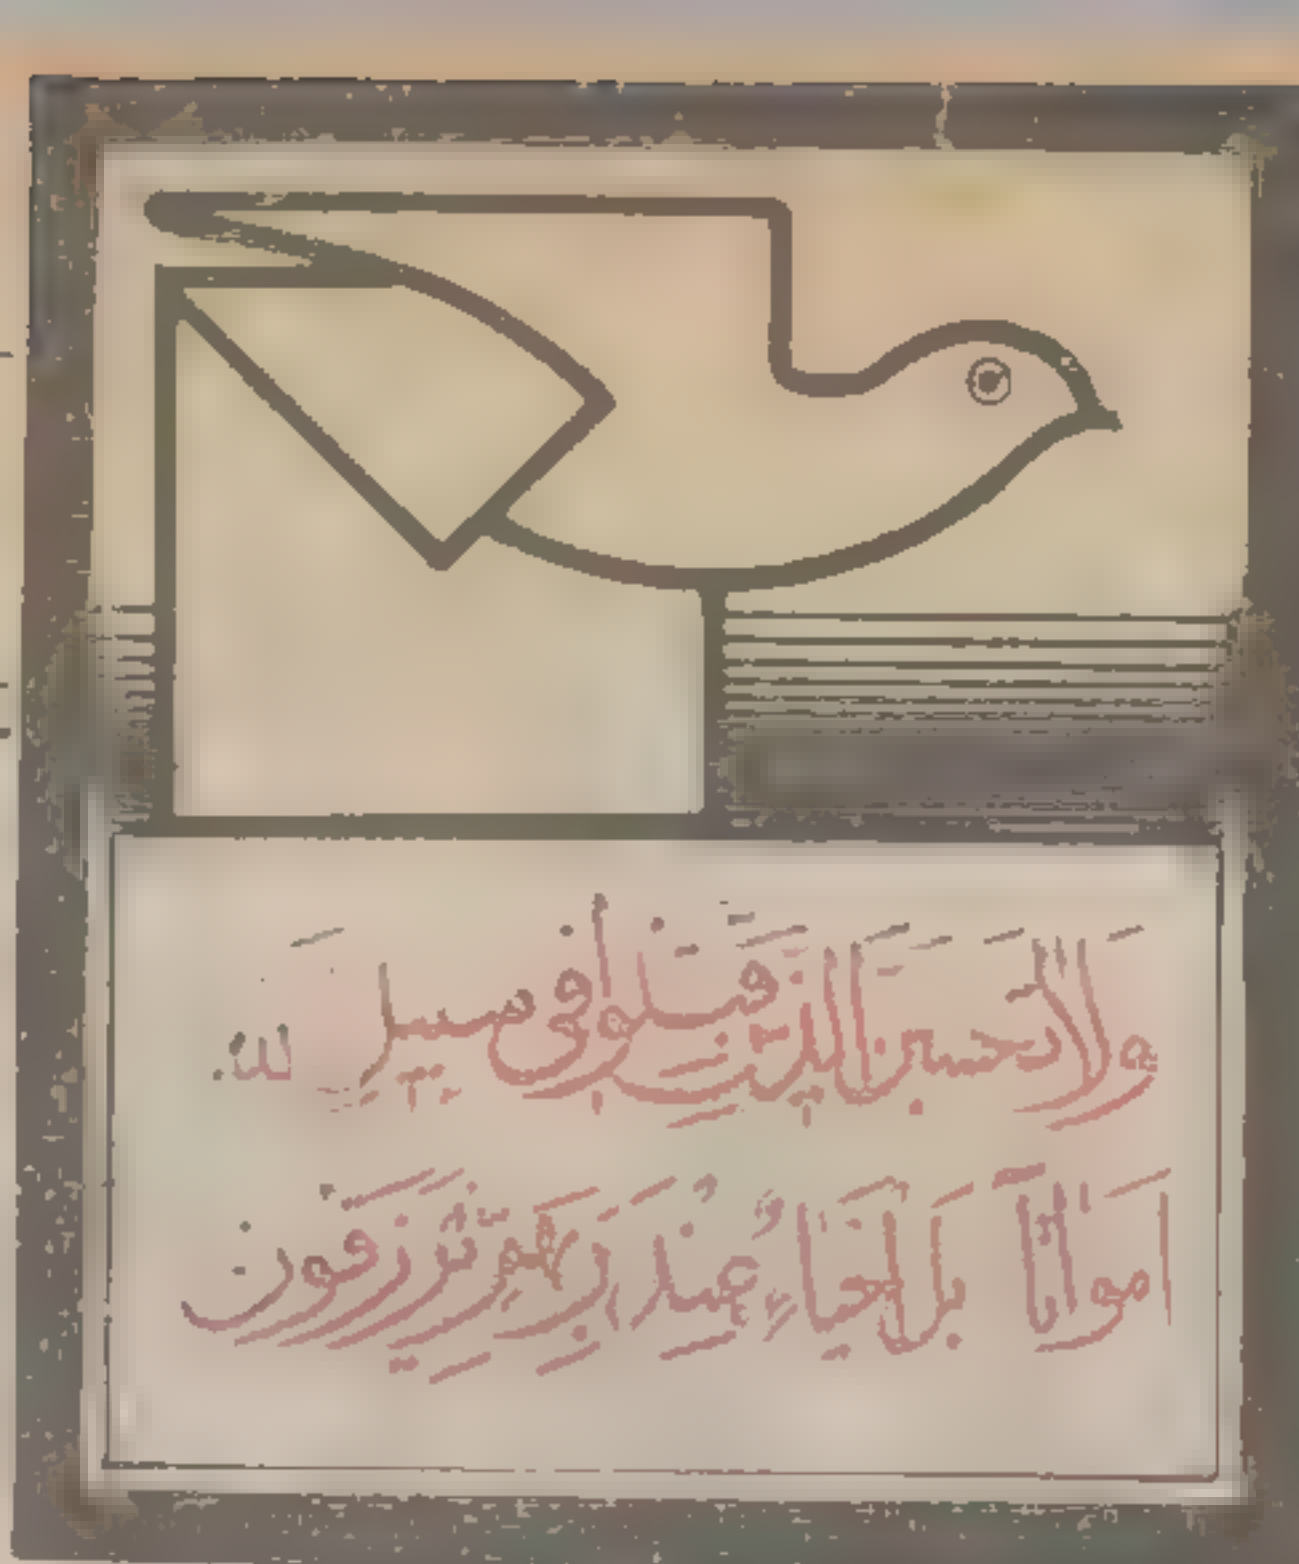 ولا تحسبن الذين قتلوا في سبيل الله
امواتا بل احياء عند ربهم يرزقون